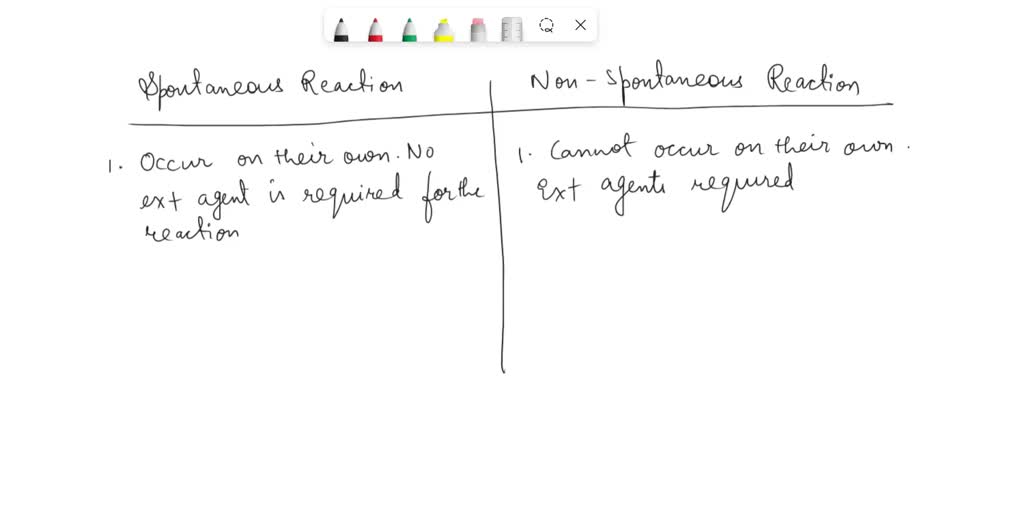 Spontaneous Reaction
Non-Spontaneous Reaction
1. Occur on their own. No
ext agent is required for the
reaction
1. Cannot occur on their own.
Ext agents required